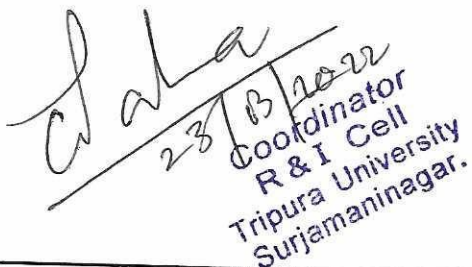 23/03/2022
Coordinator
R & I Cell
Tripura University
Surjamaninagar.